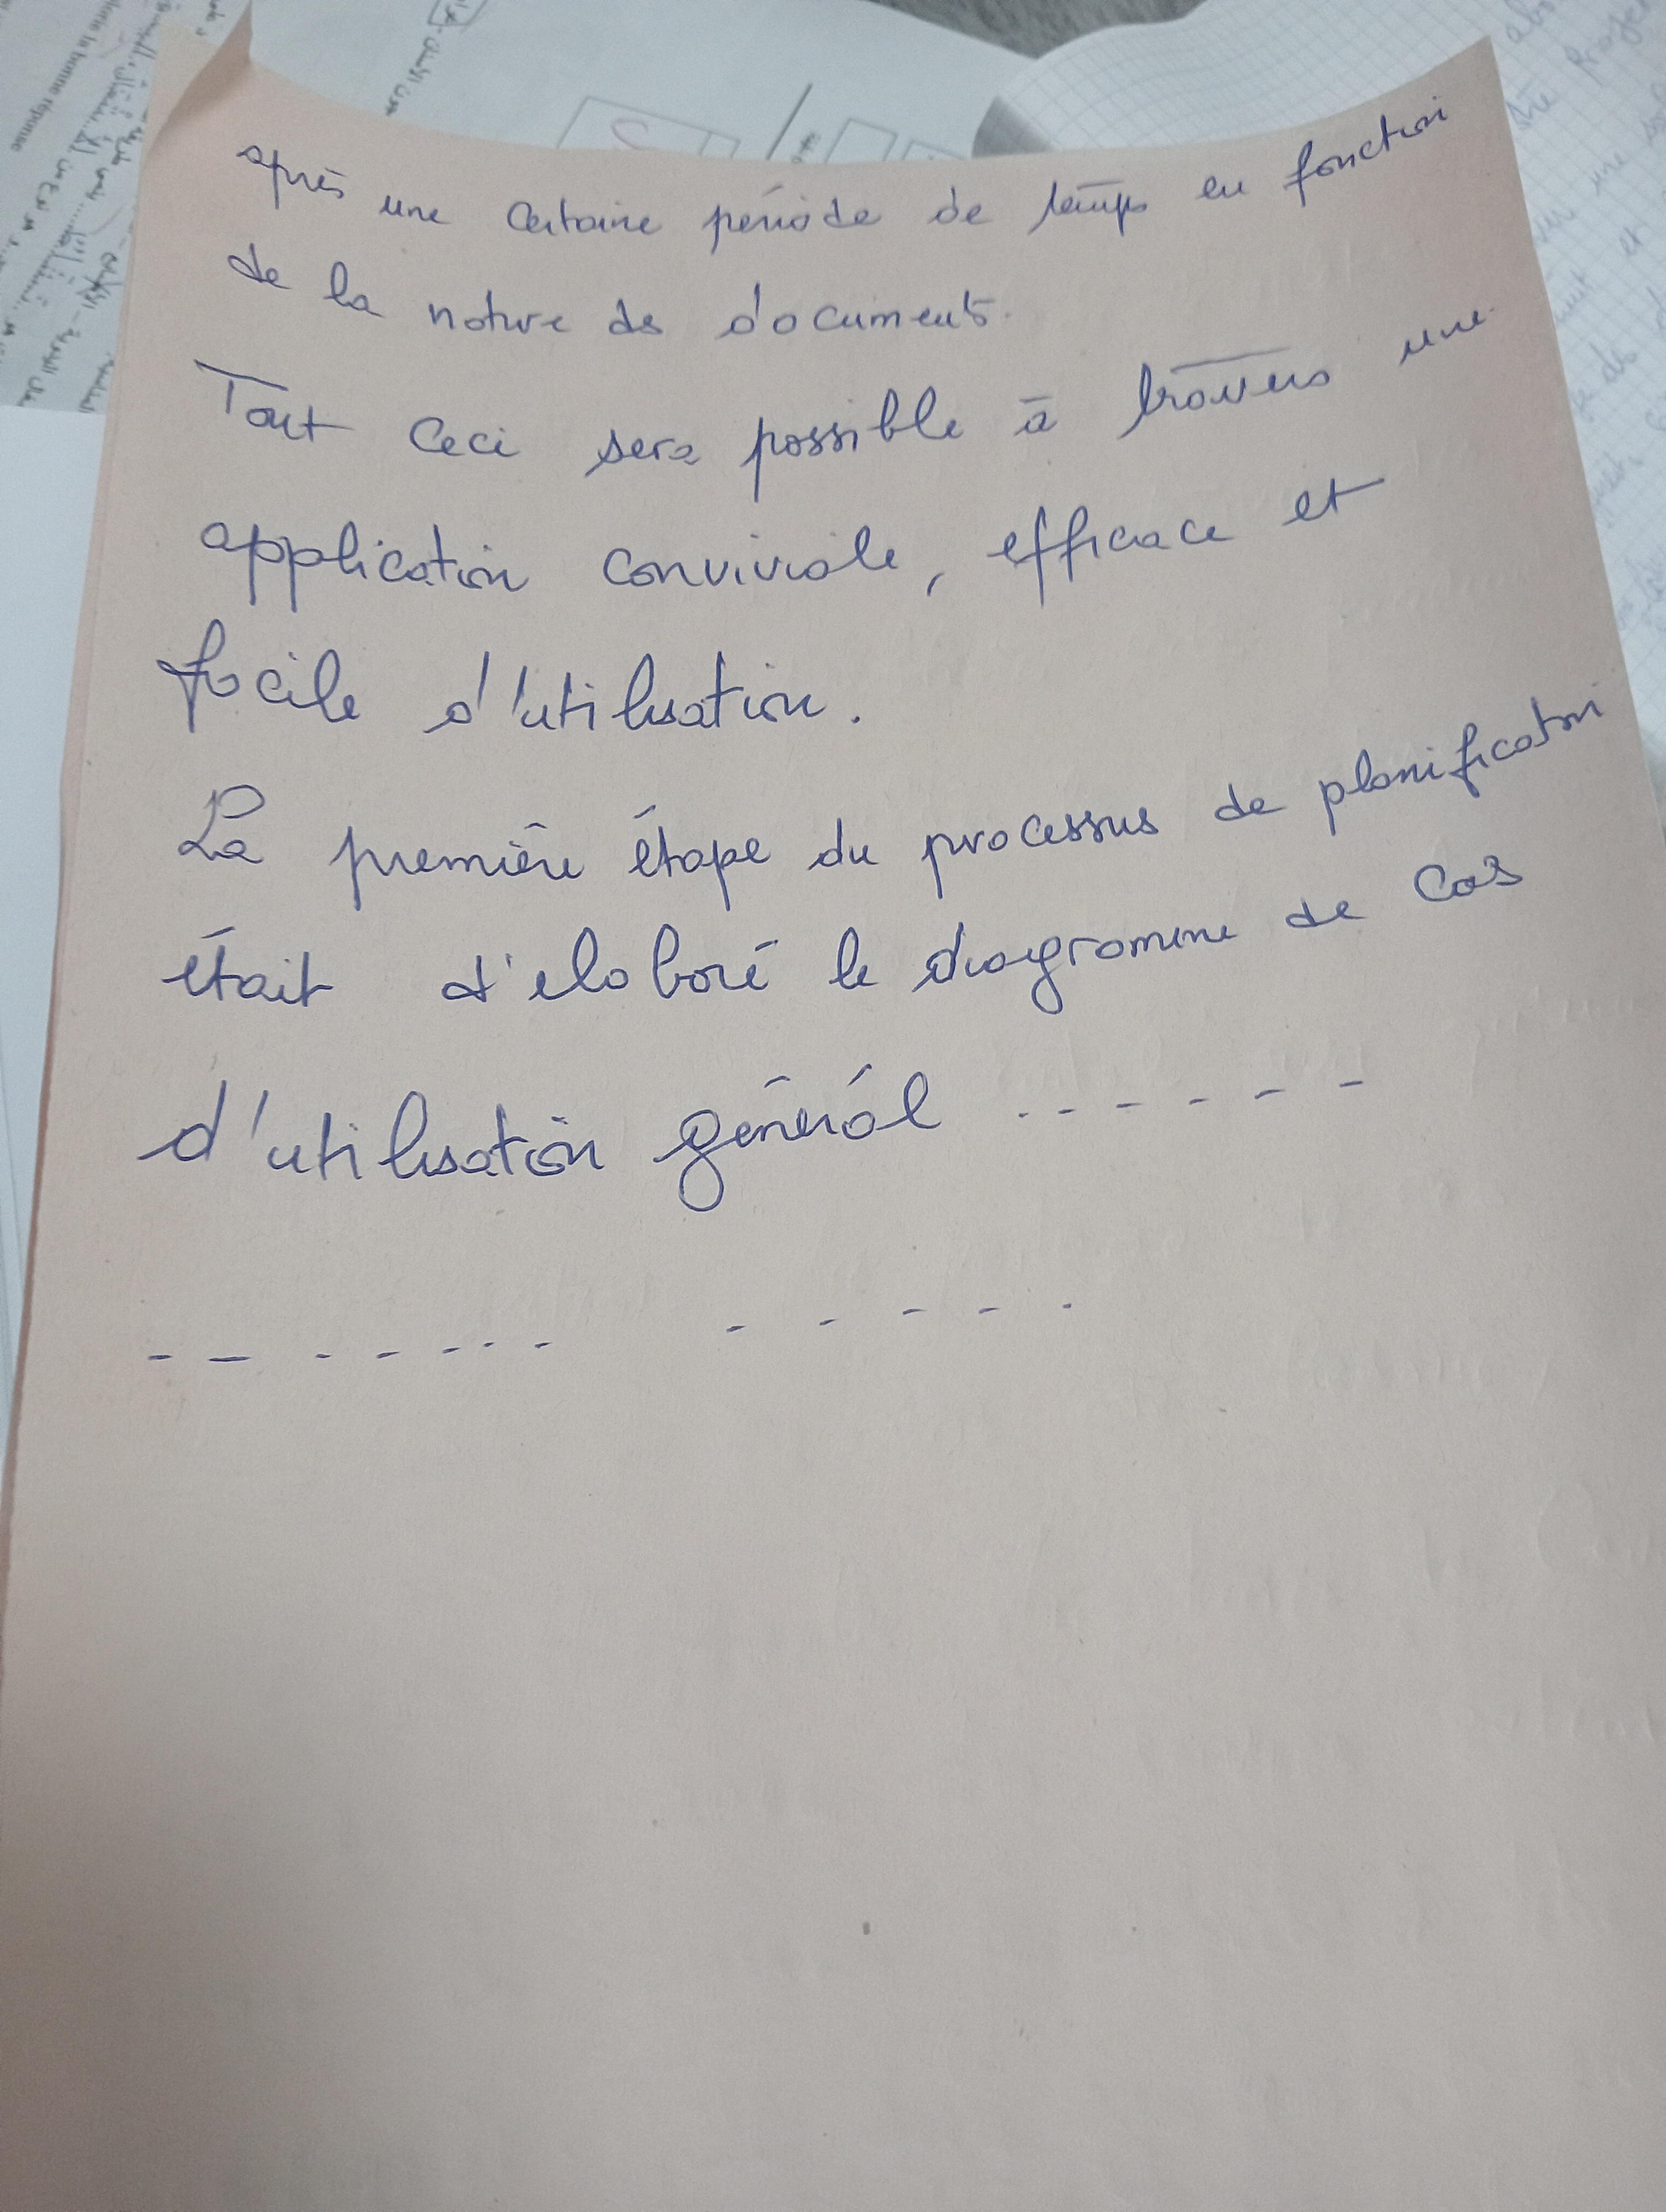 après une certaine période de temps en fonction
de la nature des documents.
Tout ceci sera possible à travers une
application conviviale, efficace et
facile d'utilisation.
La première étape du processus de planification
était d'elaboré le diagramme de cas
d'utilisation général ------
-- ----- -----